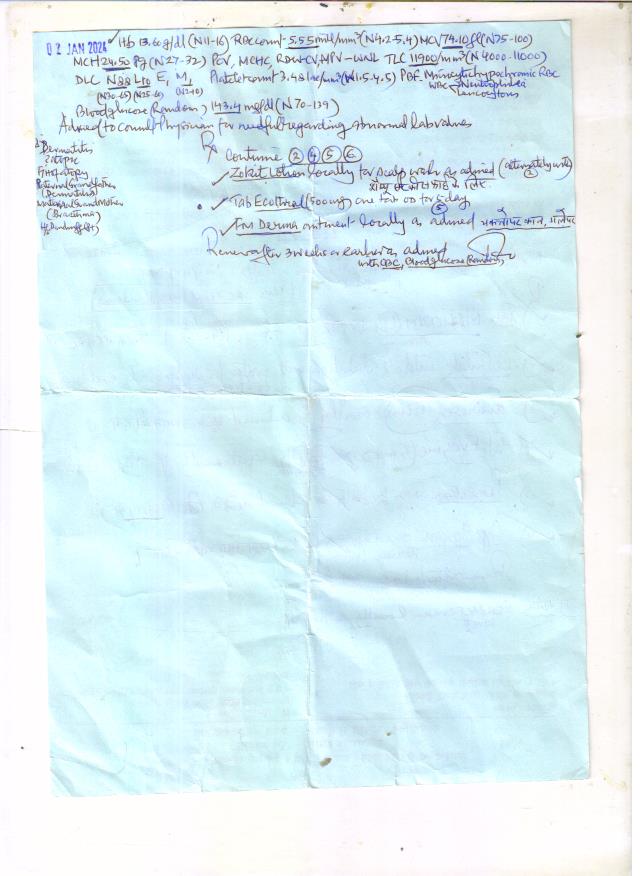 02 JAN 2024 ✓ Hb 13.60 g/dl (N 11-16) RBC count 5.55 mill/mm³ (N 4.2-5.4) MCV 74.10 fl (N 75-100)
MCH 24.50 Pg (N 27-32) PCV, MCHC, RDW-CV, MPV - WNL TLC 11900/mm³ (N 4000-11000)
DLC N88 L10 E1 M1 Platelet count 3.48 lac/mm³ (N 1.5-4.5) PBF Microcytic hypochromic RBC
(N30-65) (N25-60) (N2-10) WBC → Neutrophilia
Leucocytosis
Blood glucose (Random) 143.4 mg/dl (N 70-139)
Advised to consult Physician for needful regarding Abnormal lab values
Dermatitis
Atopic
F/H Atopy
Paternal Grandfather
(Dermatitis)
Maternal Grandmother
(Br asthma)
H/o Dandruff (+)
Rx Continue ② ④ ⑤ ⑥
✓ Zokit Lotion locally for scalp wash as advised (alternately with ②)
✓ Tab (500mg) one tab OD for 5 day
⑤
✓ Derma ointment locally as advised कान, पर
Renew after 3 weeks or earlier as advised
with CBC, Blood glucose (Random)